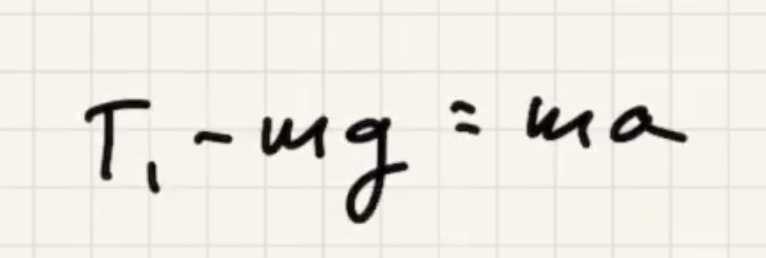 T₁ - mg = ma